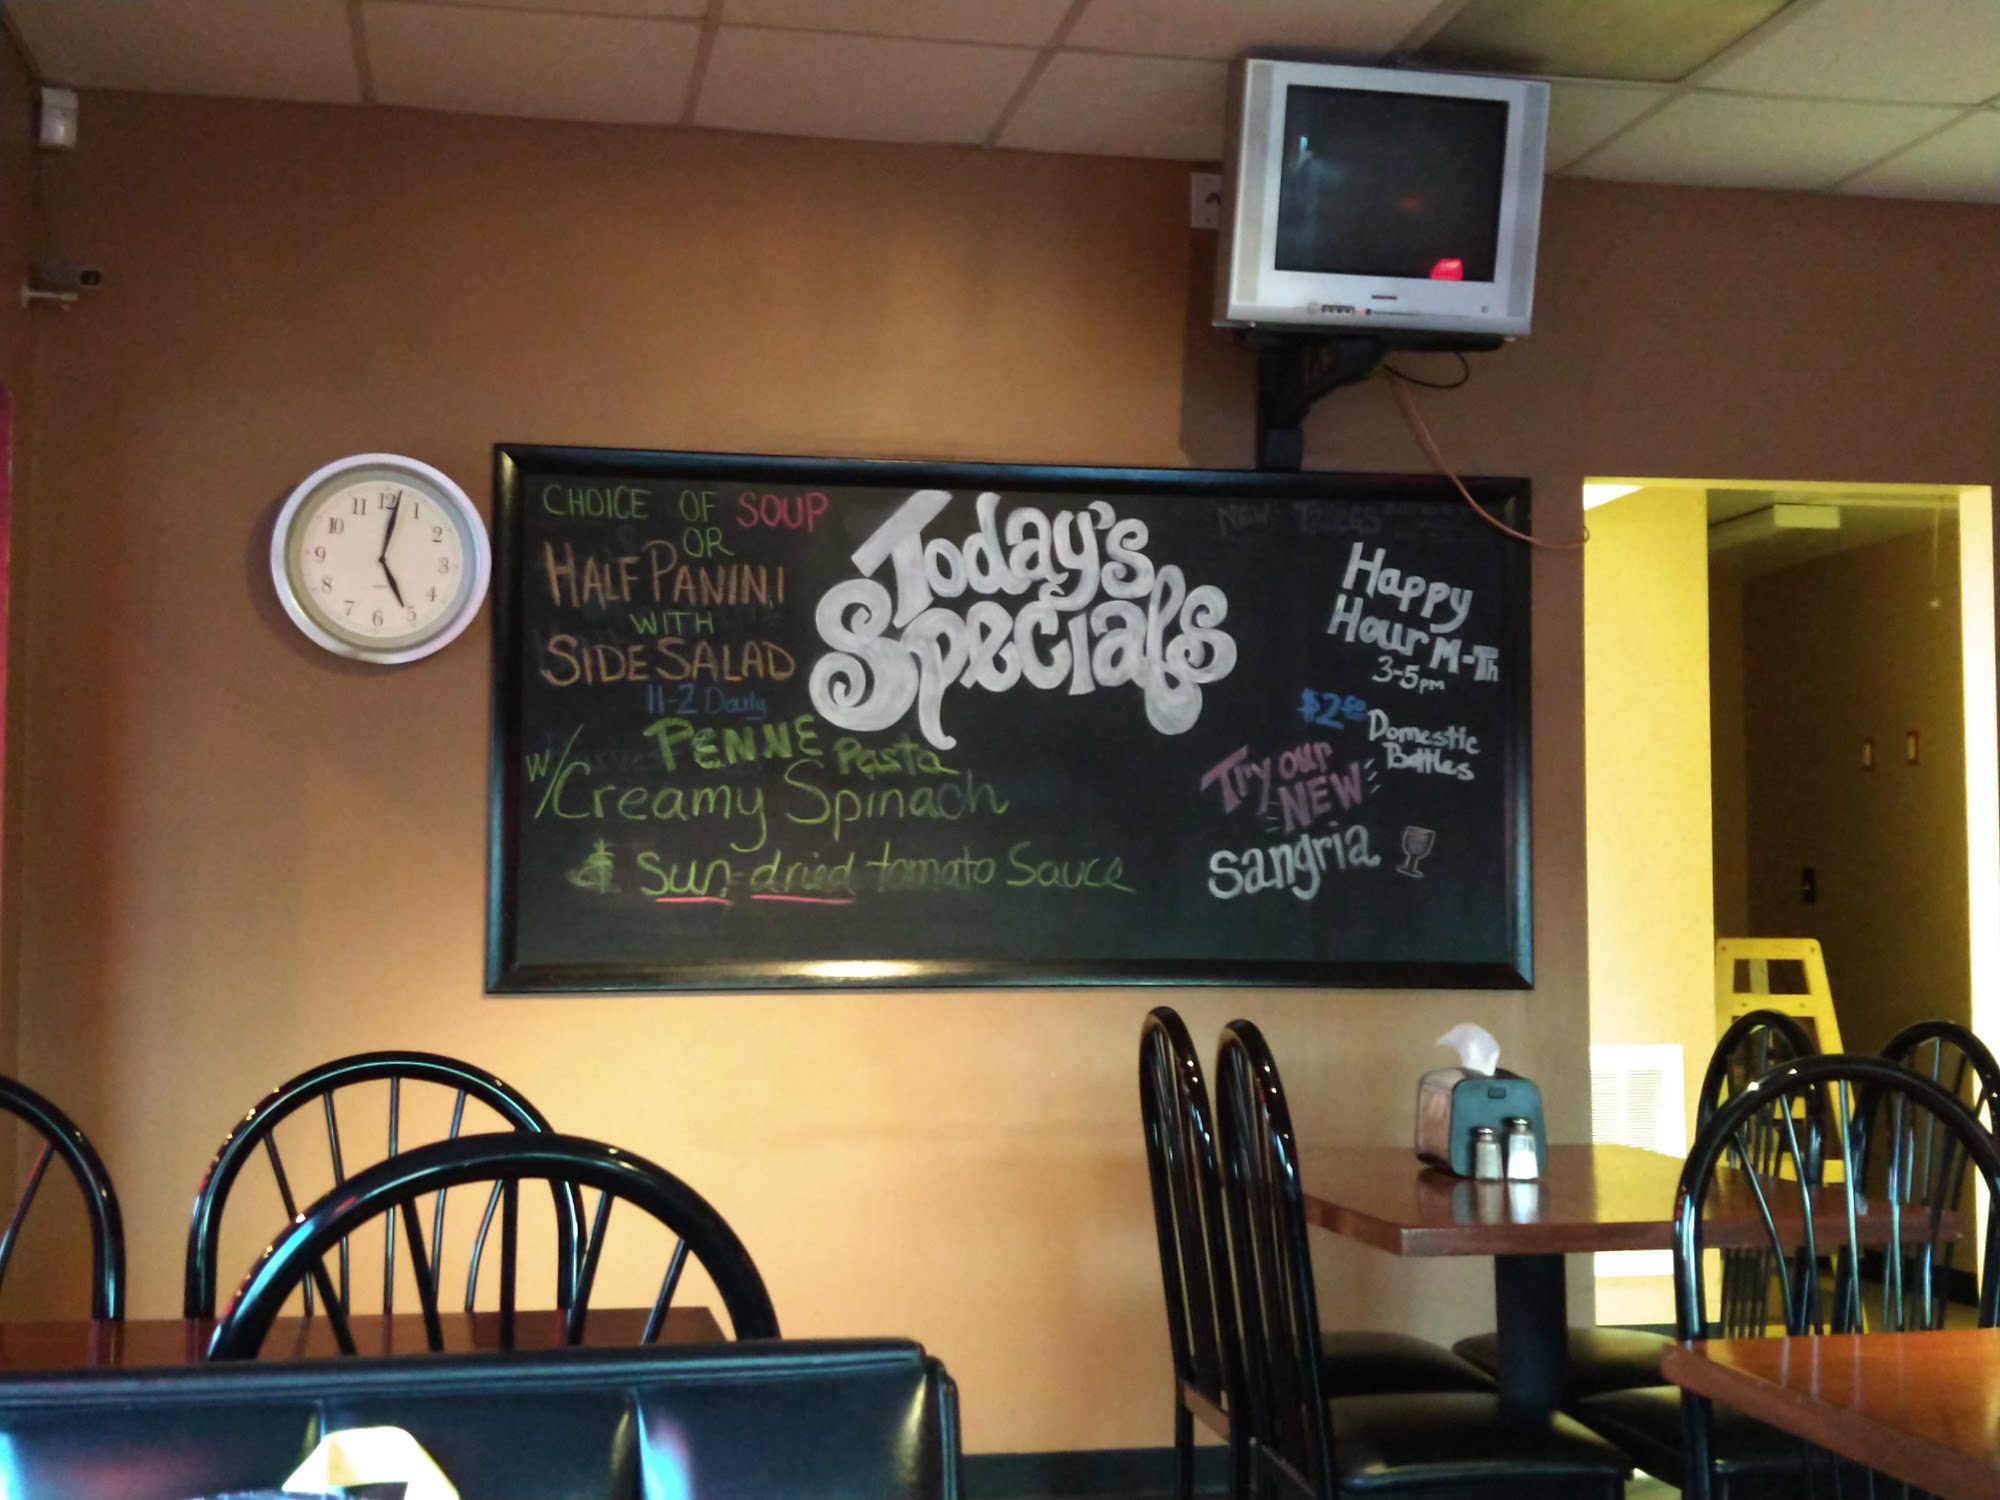 12
1
2
3
4
5
6
7
8
9
10
11
CHOICE OF SOUP
OR
HALF PANINI
WITH
SIDE SALAD
11-2 Daily
PENNE Pasta
w/ Creamy Spinach
& Sun-dried tomato Sauce
Today's
Specials
NEW
Happy
Hour M-Th
3-5pm
$2.50 Domestic
Bottles
Try our
NEW
Sangria